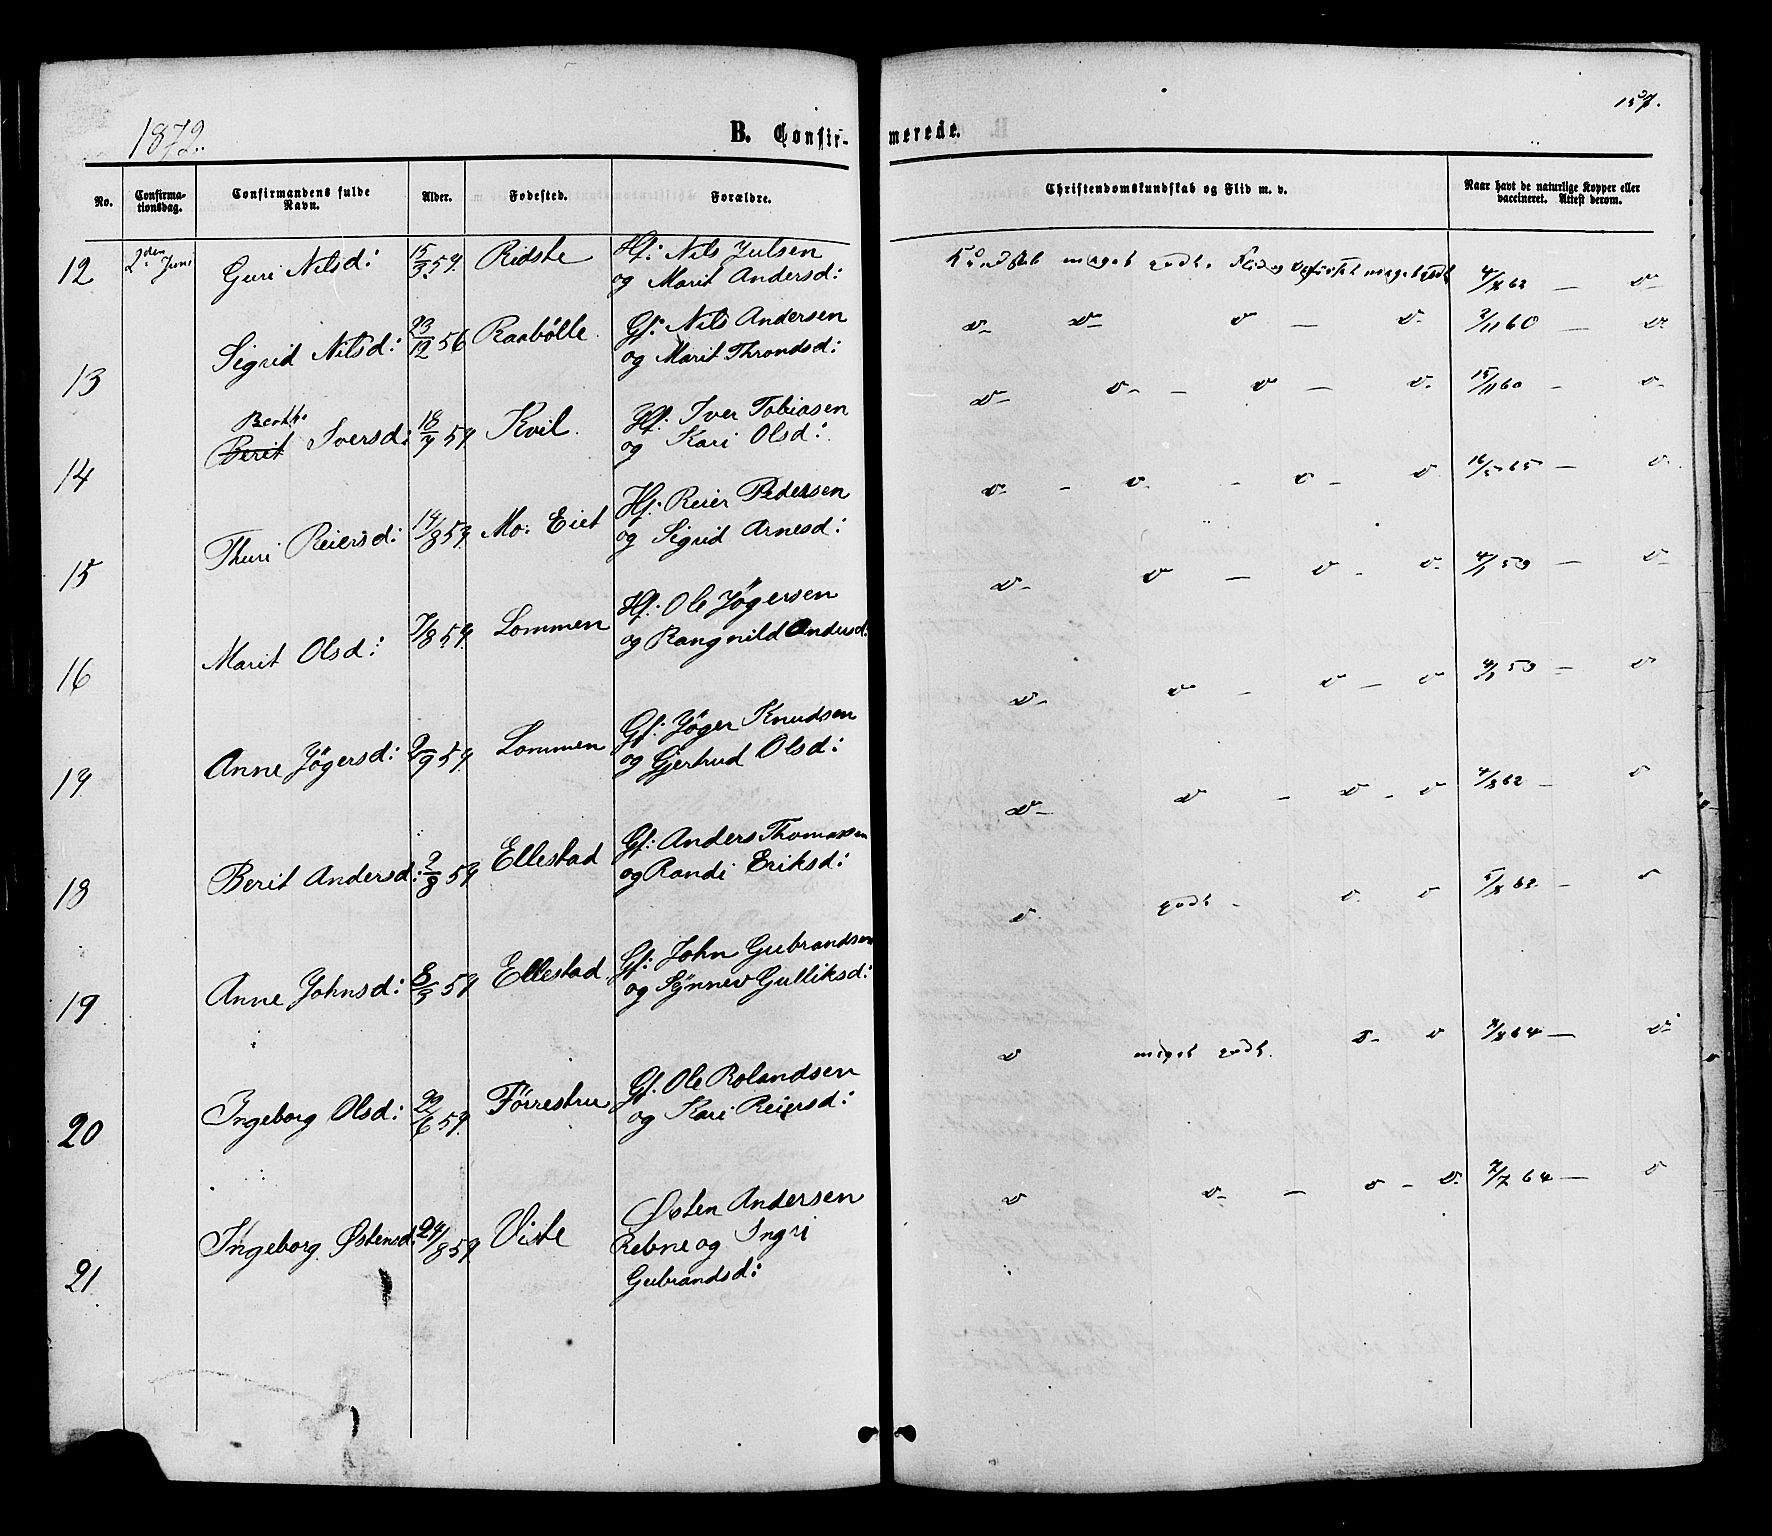 1872.
B. Confir-
merede.
157.
No.
Confirma-
tionsdag.
Confirmandens fulde
Navn.
Alder.
Fødested.
Forældre.
Christendomskundskab og Flid m. v.
Naar havt de naturlige Kopper eller
vaccineret. Attest derom.
12 2den Juni Guri Nilsd: 15/3 57. Ridste Hf: Nils Julsen
og Marit Andersd:
Kundskab meget godt. Flid og Opførsel meget godt 4/8 62 — v-
13 Sigrid Nilsd: 23/12 56 Raabølle. Gf: Nils Andersen
og Marit Throndsd:
v- v- v — v- 2/11 60 — v-
14 Berthe
Berit Iversd: 18/7 57 Kvil. Hf: Iver Tobiasen
og Kari Olsd:
v- v- — v — v- 15/11 60 — v-
15 Thuri Reiersd: 14/8 57. Mo: Eiet Hf: Reier Pedersen
og Sigrid Arnesd:
v- — v- - v - v 16/5 65 — v.
16 Marit Olsd: 7/8 57. Lommen Hf: Ole Jøgersen
og Rangnild Andersd:
v- v — v - v- — v-
17 Anne Jøgersd: 2/9 57. Lommen Gf: Jøger Knudsen
og Gjertrud Olsd:
v- v — v — v — v
18 Berit Andersd: 2/8 57 Ellestad Gf: Anders Thomassen
og Randi Eriksd:
v- v — v - v 4/8 62 — v
19 Anne Johnsd: 8/3 57 Ellestad. Gf: John Gubrandsen
og Synnev Gulliksd:
v. godt - v. v 5/8 62 — v
20 Ingeborg Olsd: 22/6 57. Førrestru Gf: Ole Rolandsen
og Kari Reiersd:
v meget godt. v- v 64 — v
21 Ingeborg Østensd: 24/8 57. Viste Østen Andersen
Rebne og Ingri
Gubrandsd:
v v- — v - v- 64 — v